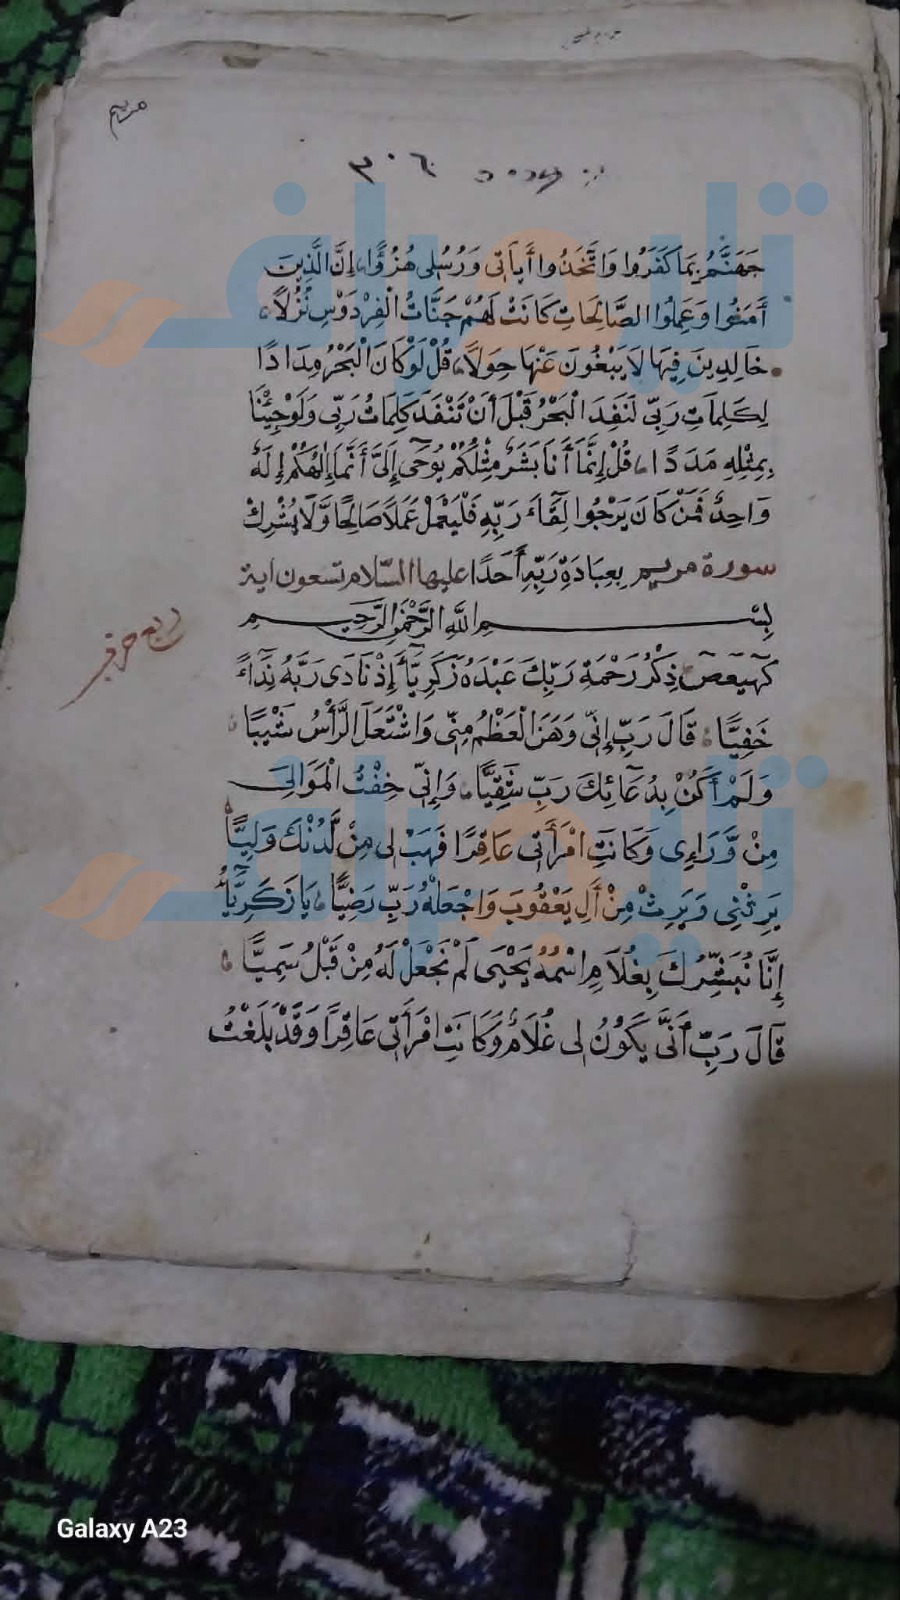 مريم
٣٠٦
جَهَنَّمُ بِمَا كَفَرُوا وَاتَّخَذُوا أٰيَاتِى وَرُسُلِى هُزُوًا إِنَّ الَّذِينَ
أٰمَنُوا وَعَمِلُوا الصَّالِحَاتِ كَانَتْ لَهُمْ جَنَّاتُ الْفِرْدَوْسِ نُزُلًا
خَالِدِينَ فِيهَا لَا يَبْغُونَ عَنْهَا حِوَلًا قُلْ لَوْ كَانَ الْبَحْرُ مِدَادًا
لِكَلِمَاتِ رَبِّى لَنَفِدَ الْبَحْرُ قَبْلَ أَنْ تَنْفَدَ كَلِمَاتُ رَبِّى وَلَوْ جِئْنَا
بِمِثْلِهِ مَدَدًا قُلْ إِنَّمَا أَنَا بَشَرٌ مِثْلُكُمْ يُوحَى إِلَىَّ أَنَّمَا إِلٰهُكُمْ إِلٰهٌ
وَاحِدٌ فَمَنْ كَانَ يَرْجُوا لِقَاءَ رَبِّهِ فَلْيَعْمَلْ عَمَلًا صَالِحًا وَّلَا يُشْرِكْ
سورة مريم بِعِبَادَةِ رَبِّهِ أَحَدًا عليها السّلام تسعون اية
بِسْمِ اللّٰهِ الرَّحْمٰنِ الرَّحِيمِ
كٓهٰيٰعٓصٓ ذِكْرُ رَحْمَةِ رَبِّكَ عَبْدَهُ زَكَرِيَّا إِذْ نَادَى رَبَّهُ نِدَاءً
خَفِيًّا قَالَ رَبِّ إِنِّى وَهَنَ الْعَظْمُ مِنِّى وَاشْتَعَلَ الرَّأْسُ شَيْبًا
وَلَمْ أَكُنْ بِدُعَائِكَ رَبِّ شَقِيًّا وَإِنِّى خِفْتُ الْمَوَالِىَ
مِنْ وَّرَاءِى وَكَانَتِ امْرَأَتِى عَاقِرًا فَهَبْ لِى مِنْ لَّدُنْكَ وَلِيًّا
يَرِثُنِى وَيَرِثُ مِنْ أٰلِ يَعْقُوبَ وَاجْعَلْهُ رَبِّ رَضِيًّا يَا زَكَرِيَّا
إِنَّا نُبَشِّرُكَ بِغُلَامٍ اسْمُهُ يَحْيَى لَمْ نَجْعَلْ لَهُ مِنْ قَبْلُ سَمِيًّا
قَالَ رَبِّ أَنَّى يَكُونُ لِى غُلَامٌ وَكَانَتِ امْرَأَتِى عَاقِرًا وَقَدْ بَلَغْتُ
ربع حزب
تايم اف
تايم اف
Galaxy A23